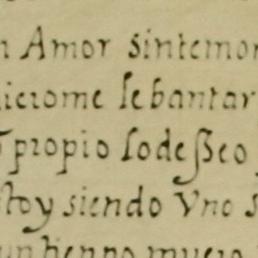 n Amor sintemor
icieronme lebantar
propio lo desseo
stoy siendo vno s